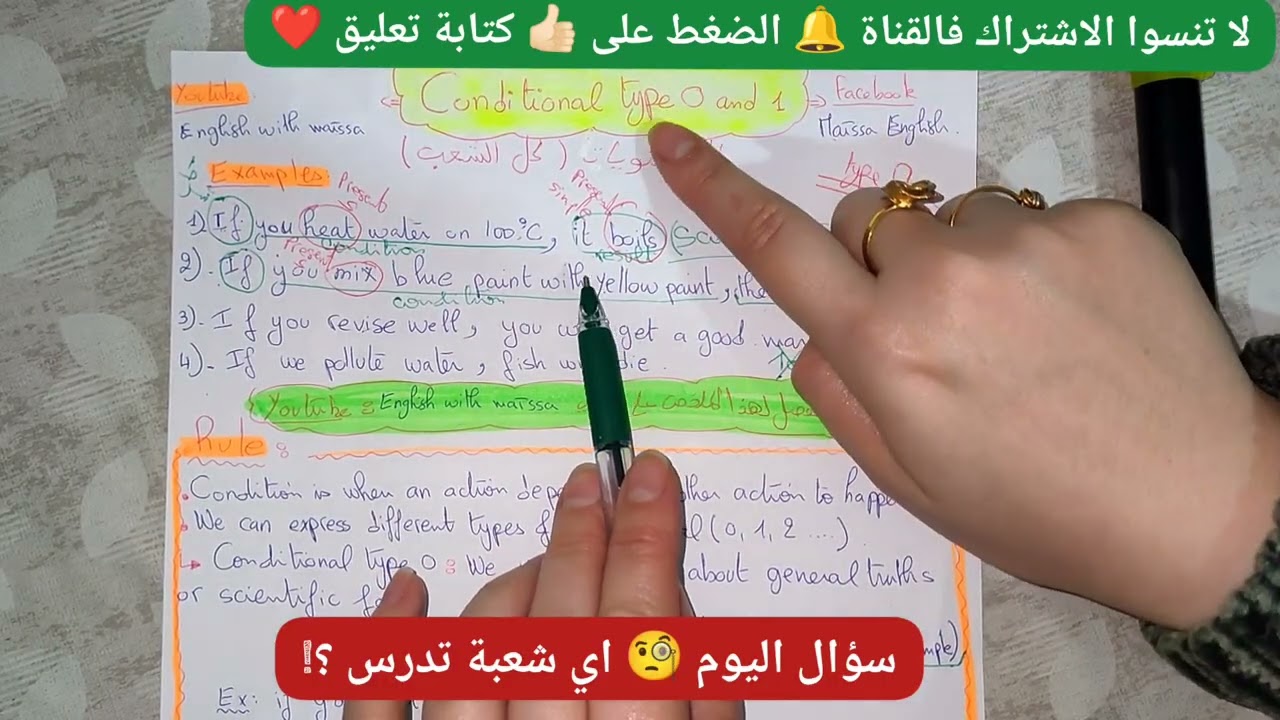 لا تنسوا الاشتراك فالقناة 🔔 الضغط على 👍🏻 كتابة تعليق ❤️
Youtube
English with maïssa
Conditional type 0 and 1
Facebook
Maïssa English.
(كل الشعب)
type 0
Examples:
Present
Present simple
1) If you heat water on 100°C, it boils
condition
result
Present
2). If you mix blue paint with yellow paint,
condition
3). If you revise well, you get a good
4). If we pollute water, fish die.
Youtube : English with maïssa
Rule :
Condition is when an action action to
We can express different types (0, 1, 2 ....)
↳ Conditional type 0 : We about general truths
or scientific
Ex: if
سؤال اليوم 🧐 اي شعبة تدرس ؟!